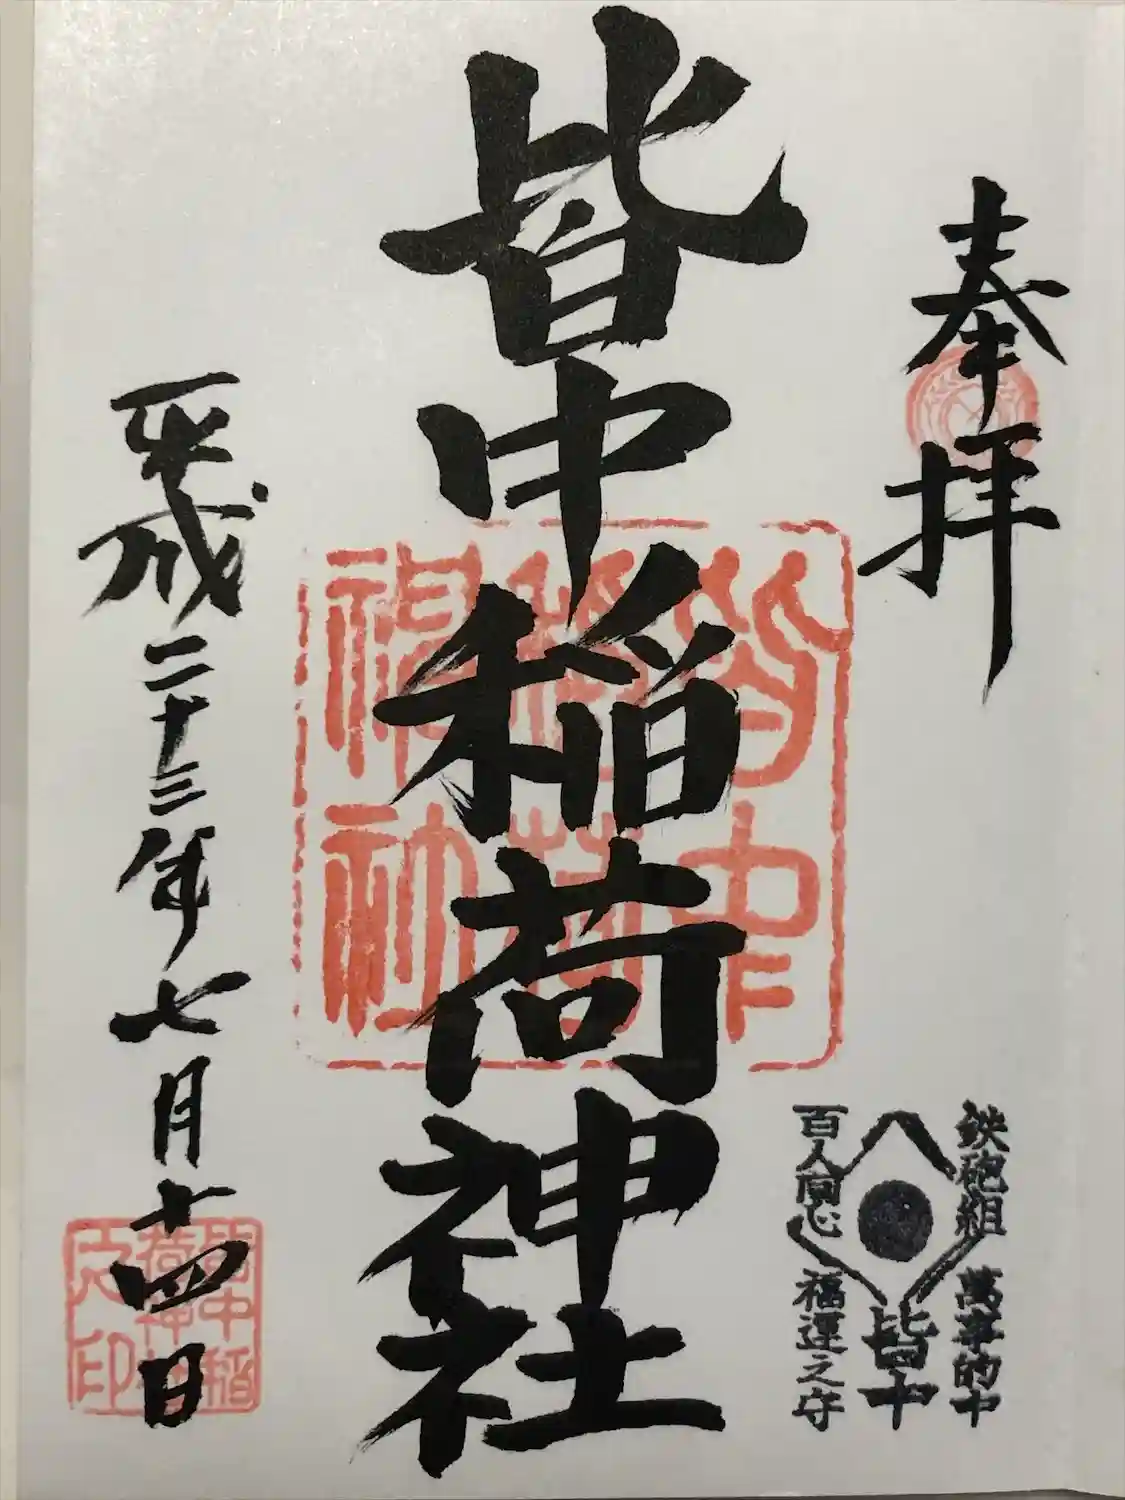 奉拝
皆中稲荷神社
平成二十三年七月十四日
皆中
稲荷
神社
鉄砲組 萬事的中
皆中
百人同心 福運之守